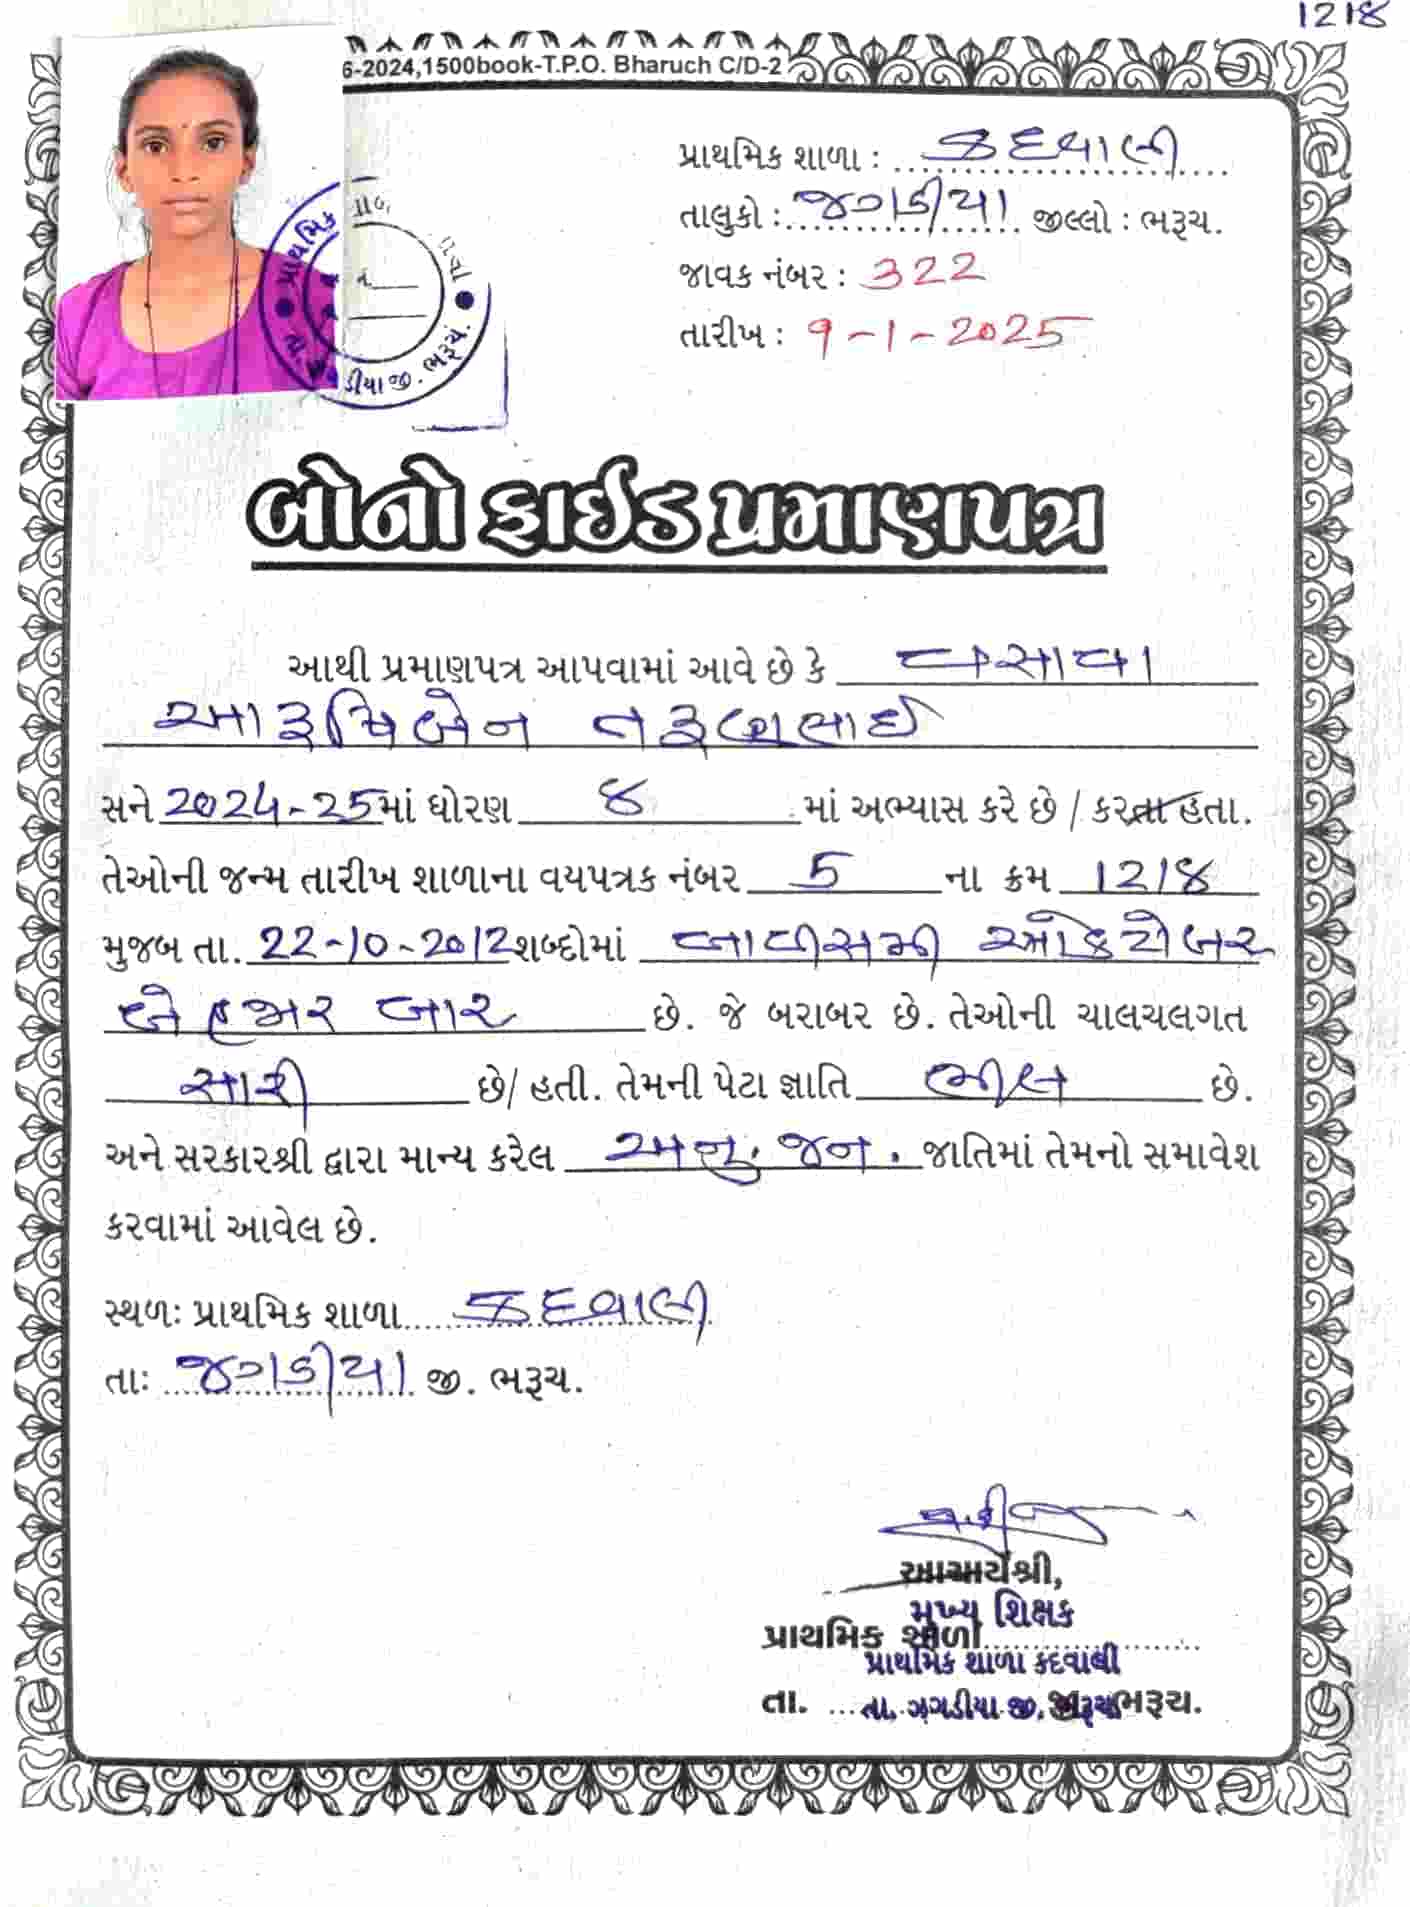 1218
6-2024,1500book-T.P.O. Bharuch C/D-2
પ્રાથમિક શાળા : કદવાલી
તાલુકો : જગડીયા જીલ્લો : ભરૂચ.
જાવક નંબર : 322
તારીખ : 9-1-2025
પ્રાથમિક
ડીયા જી. ભરૂચ.
બોનો ફાઈડ પ્રમાણપત્ર
આથી પ્રમાણપત્ર આપવામાં આવે છે કે વસાવા
આરૂચિબેન તરૂણભાઈ
સને 2024-25માં ધોરણ ૪ માં અભ્યાસ કરે છે / કરતા હતા.
તેઓની જન્મ તારીખ શાળાના વયપત્રક નંબર 5 ના ક્રમ 1218
મુજબ તા. 22-10-2012 શબ્દોમાં બાવીસમી ઓકટોબર
બે હજાર બાર છે. જે બરાબર છે. તેઓની ચાલચલગત
સારી છે/ હતી. તેમની પેટા જ્ઞાતિ ભીલ છે.
અને સરકારશ્રી દ્વારા માન્ય કરેલ અનુ. જન. જાતિમાં તેમનો સમાવેશ
કરવામાં આવેલ છે.
સ્થળઃ પ્રાથમિક શાળા કદવાલી
તાઃ જગડીયા જી. ભરૂચ.
આચાર્યશ્રી,
મુખ્ય શિક્ષક
પ્રાથમિક શાળા
પ્રાથમિક શાળા કદવાલી
તા. તા. ઝગડીયા જી. ભરૂચ.